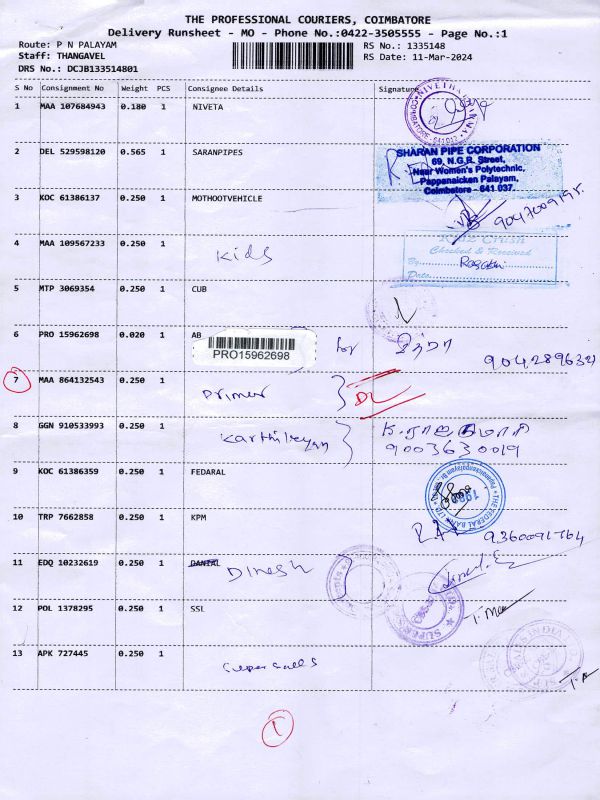 THE PROFESSIONAL COURIERS, COIMBATORE
Delivery Runsheet - MO - Phone No.:0422-3505555 - Page No.:1
Route: P N PALAYAM
Staff: THANGAVEL
DRS No.: DCJB133514801
RS No.: 1335148
RS Date: 11-Mar-2024
S No Consignment No Weight PCS Consignee Details Signature
1 MAA 107684943 0.180 1 NIVETA
2 DEL 529598120 0.565 1 SARANPIPES
SHARAN PIPE CORPORATION
69, N.G.R. Street,
Near Women's Polytechnic,
Pappanaicken Palayam,
Coimbatore - 641 037.
3 KOC 61386137 0.250 1 MOTHOOTVEHICLE
9047009195
4 MAA 109567233 0.250 1 Kids
Kidz Crush
Checked & Received
By
Date
5 MTP 3069354 0.250 1 CUB
6 PRO 15962698 0.020 1 AB
PRO15962698
for
7 MAA 864132543 0.250 1 Drimer
DL
8 GGN 910533993 0.250 1 Karthikeyan
9003630019
9 KOC 61386359 0.250 1 FEDARAL
10 TRP 7662858 0.250 1 KPM
9360091764
11 EDQ 10232619 0.250 1 DANIAL Dinesh
12 POL 1378295 0.250 1 SSL
13 APK 727445 0.250 1 Super Sales
1